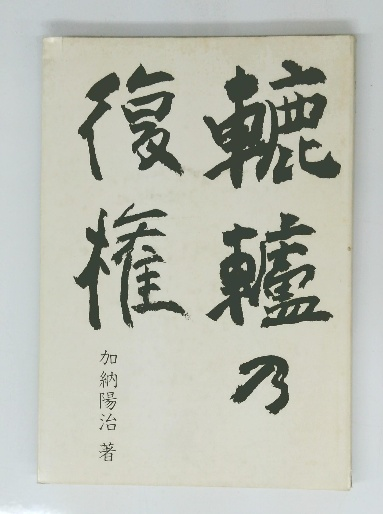 轆轤乃
復権
加納陽治 著